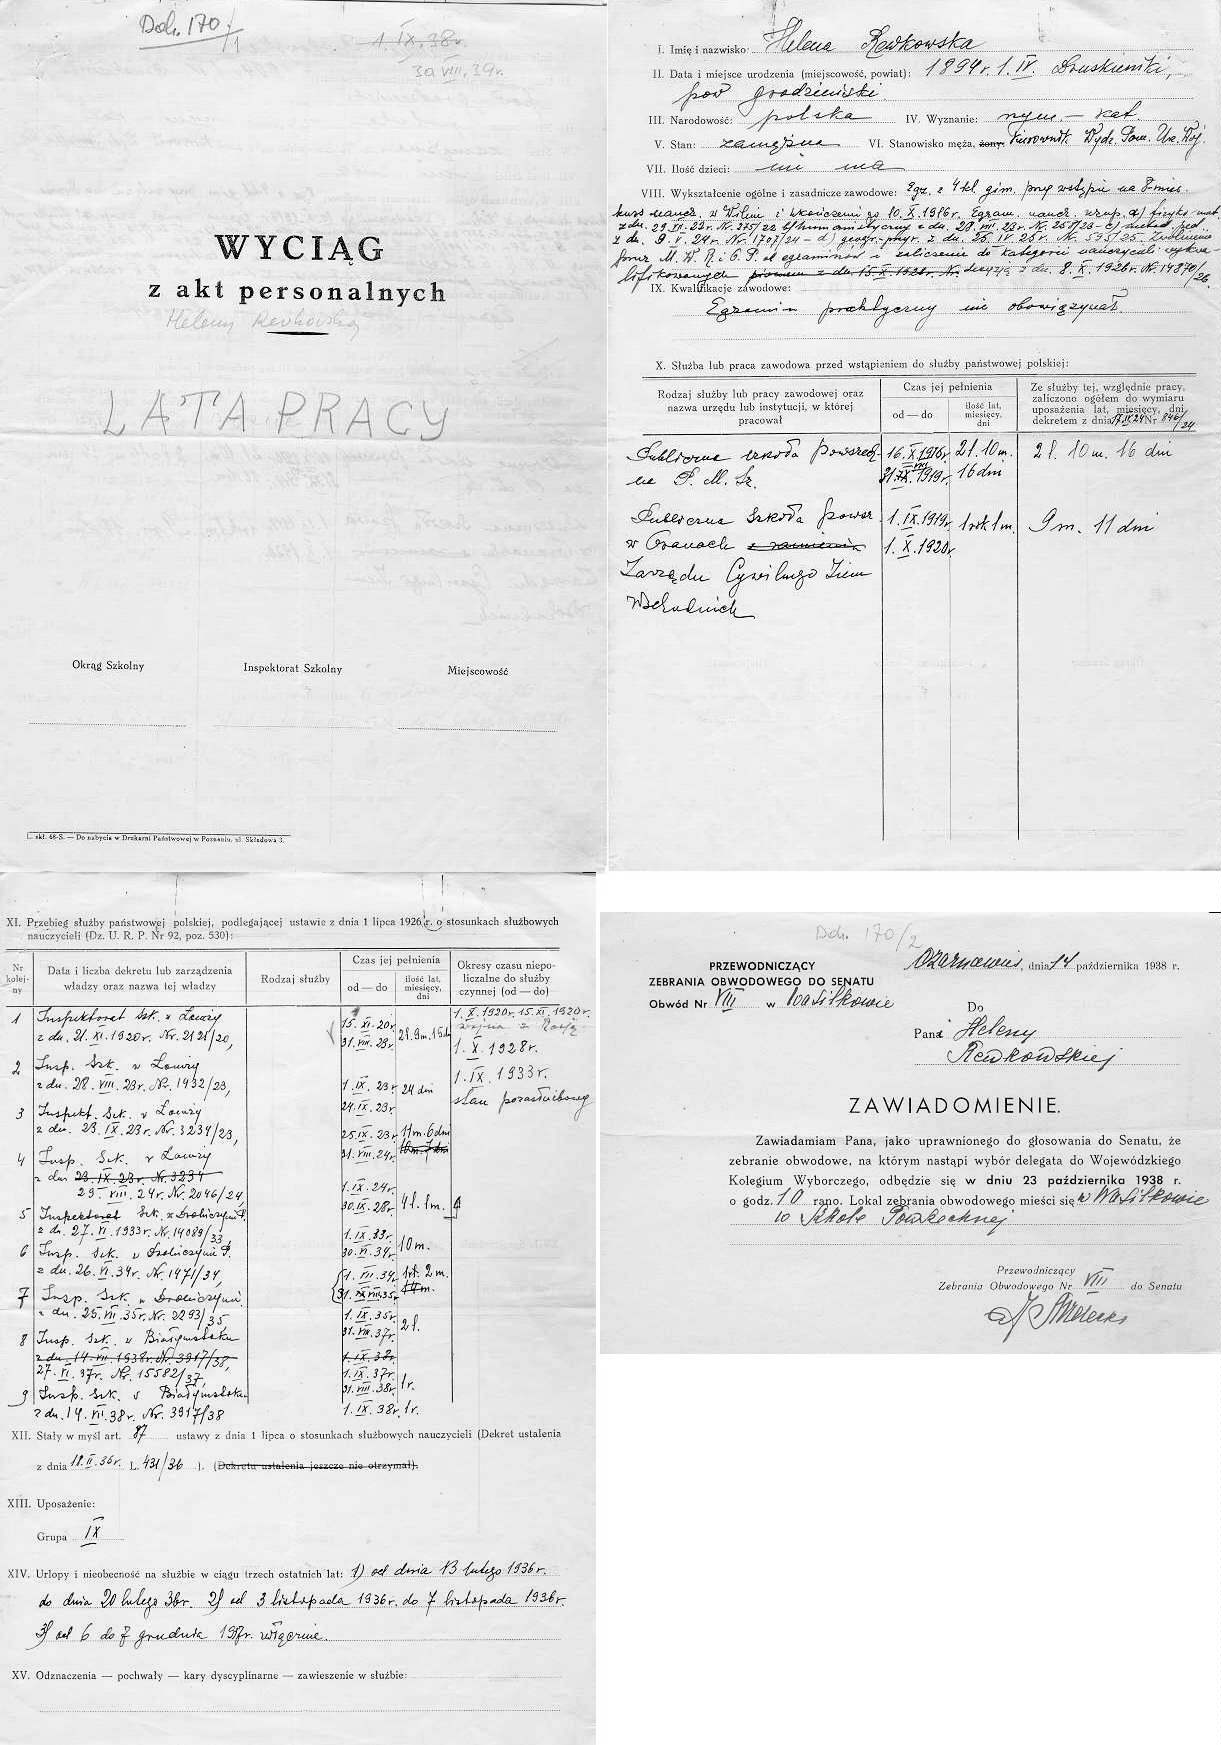 Dok. 170/1
1.IX.38r.
30.VIII.39r.
WYCIĄG
z akt personalnych
Heleny Rewkowskiej
LATA PRACY
Okrąg Szkolny
Inspektorat Szkolny
Miejscowość
skł. 46-S. — Do nabycia w Drukarni Państwowej w Poznaniu, ul. Składowa 3.
I. Imię i nazwisko: Helena Rewkowska
II. Data i miejsce urodzenia (miejscowość, powiat): 1894 r. 1. IV. Druskieniki,
pow grodzieński.
III. Narodowość: polska IV. Wyznanie: rzym. — kat.
V. Stan: zamężna VI. Stanowisko męża, żony: Kierownik Wydz. Pow. Urz. Woj.
VII. Ilość dzieci: nie ma
VIII. Wykształcenie ogólne i zasadnicze zawodowe: Egz. z 4 kl. gim. przy wstępie na 8 mies.
kurs naucz. w Wilnie i ukończeniu go 10.X.1916r. Egzam. naucz. uzup. a) fizyko-mat.
z dn. 29.VII.23r. Nr. 375/22 b) humanistyczny z dn. 28.VIII.23r. Nr. 257/23 - c)
z dn. 9.V.24r. Nr. 1707/24 - d) geogr.-przyr. z dn. 25.IV.25r. Nr. 595/25. Zwolnienie
przez M. W. R. i O. P. od egzaminów i zaliczenie do kategorii nauczycieli wykwa
lifikowanych pismem z dn. 15.X.1926r. Nr. decyzją z dn. 8.X.1926r. Nr. 14870/26.
IX. Kwalifikacje zawodowe:
Egzamin praktyczny nie obowiązywał.
X. Służba lub praca zawodowa przed wstąpieniem do służby państwowej polskiej:
Rodzaj służby lub pracy zawodowej oraz nazwa urzędu lub instytucji, w której pracował
Czas jej pełnienia
od — do
ilość lat, miesięcy, dni
Ze służby tej, względnie pracy, zaliczono ogółem do wymiaru uposażenia lat, miesięcy, dni, dekretem z dnia 17.IX.24 Nr 846/24
Publiczna szkoła powszech- 16.X.1916r. 2 l. 10 m. 2 l. 10 m. 16 dni
na P. M. Sz. 31.VIII.1919r. 16 dni
Publiczna Szkoła powsz. 1.IX.1919r. 1 rok 1 m. 9 m. 11 dni
w Oranach z ramienia 1.X.1920r.
Zarządu Cywilnego Ziem
Wschodnich
XI. Przebieg służby państwowej polskiej, podlegającej ustawie z dnia 1 lipca 1926 r. o stosunkach służbowych
nauczycieli (Dz. U. R. P. Nr 92, poz. 530):
Nr kolejny
Data i liczba dekretu lub zarządzenia władzy oraz nazwa tej władzy
Rodzaj służby
Czas jej pełnienia
od — do
ilość lat, miesięcy, dni
Okresy czasu niepoliczalne do służby czynnej (od — do)
1 Inspektorat Szk. w 15.XI.20r. 1.X.1920r. 15.XI.1920r.
z dn. 21.XI.1920r. Nr. 2125/20, 31.VIII.23r. 2 l. 9 m. 15 dn wojna z Rosją
1.X.1928r.
2 Insp. Szk. w
z dn. 28.VIII.23r. Nr. 1932/23, 1.IX.23r. 24 dni 1.IX.1933r.
24.IX.23r. stan pozasłużbowy
3 Inspekt. Szk. w
z dn. 23.IX.23r. Nr. 3234/23, 25.IX.23r. 11 m. 6 dni
31.VIII.24r.
4 Insp. Szk. w
z dn 23.IX.23r. Nr. 3234
29.VIII.24r. Nr. 2046/24, 1.IX.24r.
30.IX.28r. 4 l. 1 m.
5 Inspektorat Szk. w Drohiczynie P.
z dn. 27.VI.1933r. Nr. 14089/33, 1.IX.33r.
6 Insp. Szk. w Drohiczynie P. 30.VI.34r. 10 m.
z dn. 26.VI.34r. Nr. 1471/34, 1.VII.34r. 1 rk. 2 m.
7 Insp. Szk. w Drohiczynie 31.VIII.35r. 14 m.
z dn. 25.VII.35r. Nr. 2293/35 1.IX.35r.
31.VIII.37r. 2 l.
8 Insp. Szk. w Białymstoku
z dn. 14.VII.1938r. Nr. 3917/38, 1.IX.38r.
27.VI.37r. Nr. 15582/37, 1.IX.37r.
31.VIII.38r. 1 r.
9 Insp. Szk. w Białymstoku
z dn. 14.VII.38r. Nr. 3917/38 1.IX.38r. 1 r.
XII. Stały w myśl art. 87 ustawy z dnia 1 lipca o stosunkach służbowych nauczycieli (Dekret ustalenia
z dnia 18.II.36r. L. 431/36 ). (Dekretu ustalenia jeszcze nie otrzymał).
XIII. Uposażenie:
Grupa IX
XIV. Urlopy i nieobecność na służbie w ciągu trzech ostatnich lat: 1) od dnia 13 lutego 1936r.
do dnia 20 lutego 36r. 2) od 3 listopada 1936r. do 7 listopada 1936r.
3) od 6 do 7 grudnia 1937r. włącznie.
XV. Odznaczenia — pochwały — kary dyscyplinarne — zawieszenie w służbie:
Dok. 170/2
PRZEWODNICZĄCY
ZEBRANIA OBWODOWEGO DO SENATU
Obwód Nr VIII w Wasilkowie
dnia 14 października 1938 r.
Do
Pani Heleny
Rewkowskiej
ZAWIADOMIENIE.
Zawiadamiam Pana, jako uprawnionego do głosowania do Senatu, że
zebranie obwodowe, na którym nastąpi wybór delegata do Wojewódzkiego
Kolegium Wyborczego, odbędzie się w dniu 23 października 1938 r.
o godz. 10 rano. Lokal zebrania obwodowego mieści się w Wasilkowie
w Szkole Powszechnej
Przewodniczący
Zebrania Obwodowego Nr VIII do Senatu